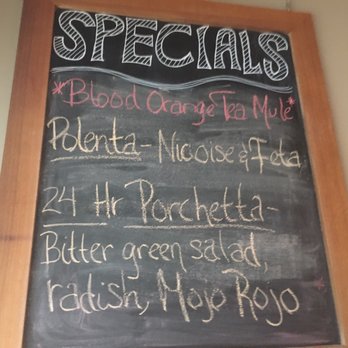 SPECIALS
*Blood Orange Tea Mule*
Polenta- Nicoise & Feta
24 Hr Porchetta-
Bitter green salad,
radish, Mojo Rojo